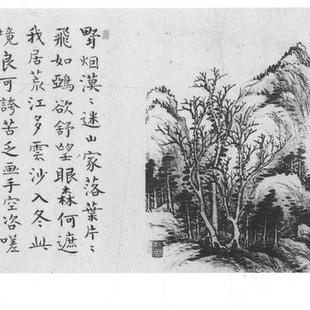 野烟漠〻迷山家落葉片〻
飛如鵶欲舒望眼森何遮
我居荒江多雲沙入冬此
境良可誇苦乏画手空咨嗟